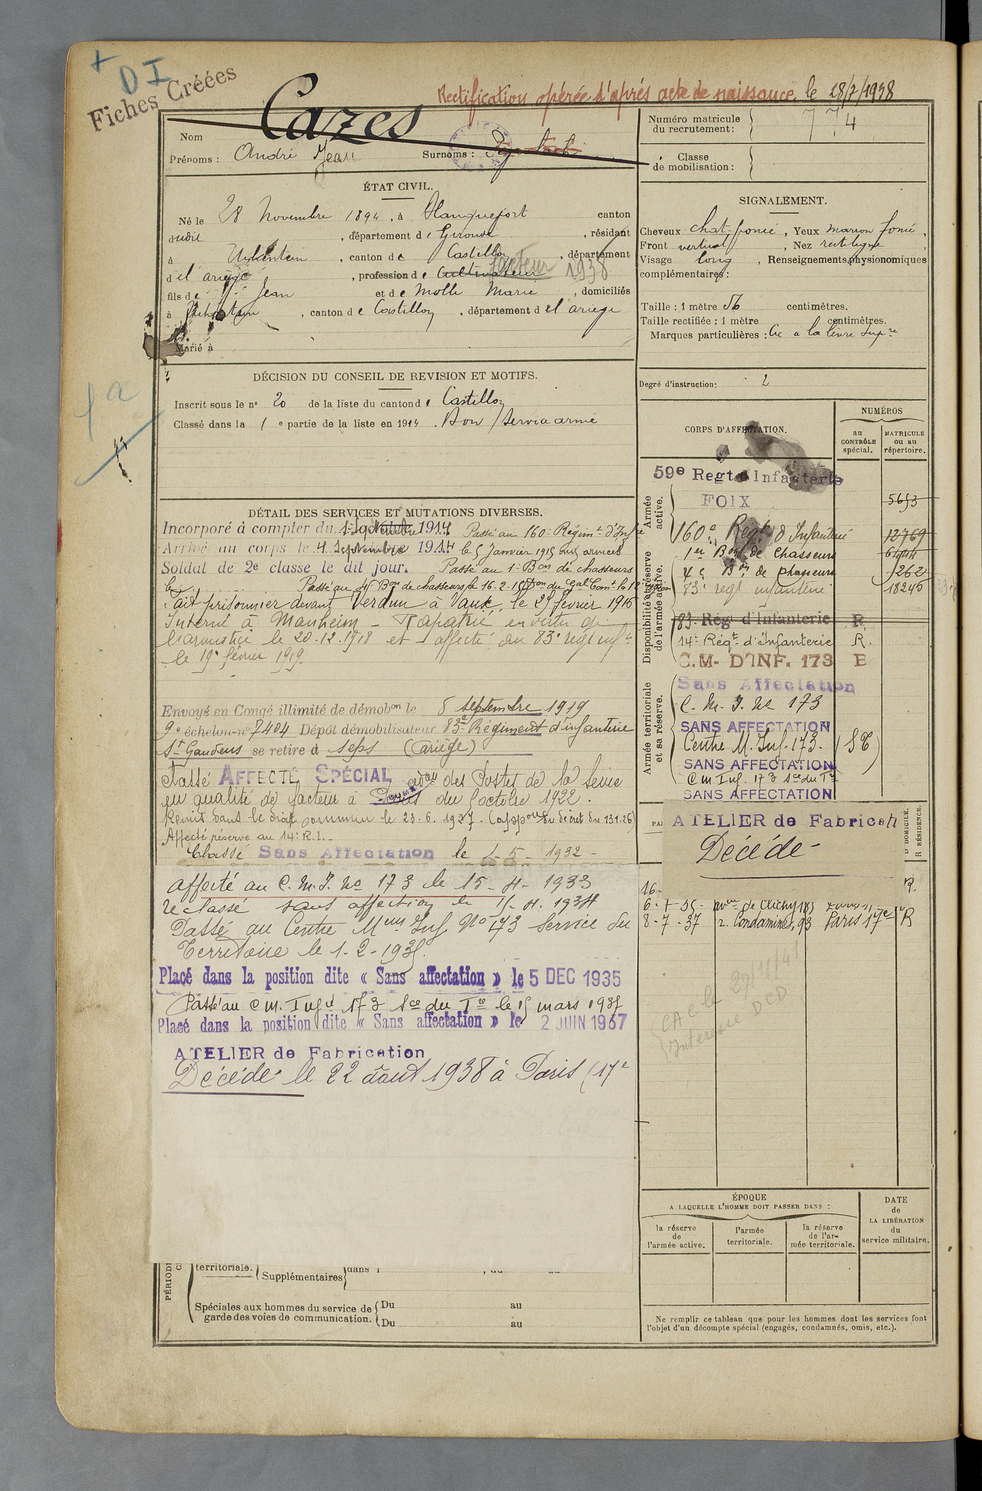 + DI
Fiches Créées
Rectification opérée d'après acte de naissance, le 28/7/1938
Cazes
Nom
Prénoms : André Jean Surnoms :
ÉTAT CIVIL.
Né le 28 Novembre 1894, à Blanquefort canton
dudit, département de Gironde, résidant
à Uchentein, canton de Castillon, département
de l'ariège, profession de Cultivateur facteur 1938
fils de Jean et de Molle Marie, domiciliés
à Uchentein, canton de Castillon, département de l'ariège
Marié à
DÉCISION DU CONSEIL DE REVISION ET MOTIFS.
Inscrit sous le n° 20 de la liste du canton de Castillon
Classé dans la 1e partie de la liste en 1914. Bon Service armé
1a
DÉTAIL DES SERVICES ET MUTATIONS DIVERSES.
Incorporé à compter du 1 Septembre 1914 Passé au 160e Régimt d'Infie
Arrivé au corps le 4 Septembre 1914 le 5 Janvier 1915
Soldat de 2e classe le dit jour. Passé au 1er Bon de chasseurs
Passé au Bon de chasseurs le 16-2-
Fait prisonnier devant Verdun à Vaux, le 27 février 1916
Interné à Manheim - Rapatrié en vertu de
l'armistice le 20-12-1918 et affecté au 83e régt inf
le 19 février 1919.
Envoyé en Congé illimité de démobon le 8 septembre 1919
9e échelon - no 7404 Dépôt démobilisateur 83e Régiment d'infanterie
St Gaudens se retire à Seps (Ariège)
Passé AFFECTÉ SPÉCIAL des Postes de la Seine
en qualité de facteur à Paris du 1 octobre 1922.
Remis dans le droit commun le 23.6.1927. (appon du décret du 13.1.26)
Affecté réserve au 14e R.I.
Classé Sans Affectation le 1-5-1932-
affecté au C.M.I. No 173 le 15-4-1933
reclassé sans affection le 15.4.1934
Passé au Centre Meur Inf No 173 Service du
Territoire le 1-2-1935.
Placé dans la position dite « Sans affectation » le 5 DEC 1935
Passé au C m. Inf 173 Sce du Tre le 15 mars 1937
Placé dans la position dite « Sans affectation » le 2 JUIN 1937
ATELIER de Fabrication
Décédé le 22 aout 1938 à Paris (17e
PÉRIODE
territoriale. Supplémentaires dans
Spéciales aux hommes du service de garde des voies de communication.
Du au
Du au
Numéro matricule du recrutement : 774
Classe de mobilisation :
SIGNALEMENT.
Cheveux chat. foncé, Yeux marron foncé,
Front vertical, Nez rectiligne,
Visage long, Renseignements physionomiques
complémentaires :
Taille : 1 mètre 56 centimètres.
Taille rectifiée : 1 mètre centimètres.
Marques particulières : Cic à la lèvre Supre
Degré d'instruction : 2
CORPS D'AFFECTATION.
NUMÉROS
au CONTRÔLE spécial.
MATRICULE ou au répertoire.
Armée active.
Disponibilité et réserve de l'armée active.
Armée territoriale et sa réserve.
59e Regt Infanterie
FOIX 5653
160e Régt d'Infanterie 12769
1er Bon de Chasseurs
4e Bon de Chasseurs 5262
83e régt infanterie 18245
83 Rég d'Infanterie R
14e Régt d'Infanterie R.
C.M. D'INF. 173 E
Sans Affectation
C. M. I. No 173
SANS AFFECTATION
Centre M. Inf. 173. (S T)
SANS AFFECTATION
C m Inf. 173 Sce du Tre
SANS AFFECTATION
ATELIER de Fabricon
Décédé
D DOMICILE.
R RÉSIDENCE.
16- R.
6-1-35- avue de Clichy
8-7-37 r. Condamines, 93 Paris 17e R
CAC le 29/11/41
DCD
ÉPOQUE
A LAQUELLE L'HOMME DOIT PASSER DANS :
la réserve de l'armée active.
l'armée territoriale.
la réserve de l'armée territoriale.
DATE de LA LIBÉRATION du service militaire.
Ne remplir ce tableau que pour les hommes dont les services font
l'objet d'un décompte spécial (engagés, condamnés, omis, etc.).